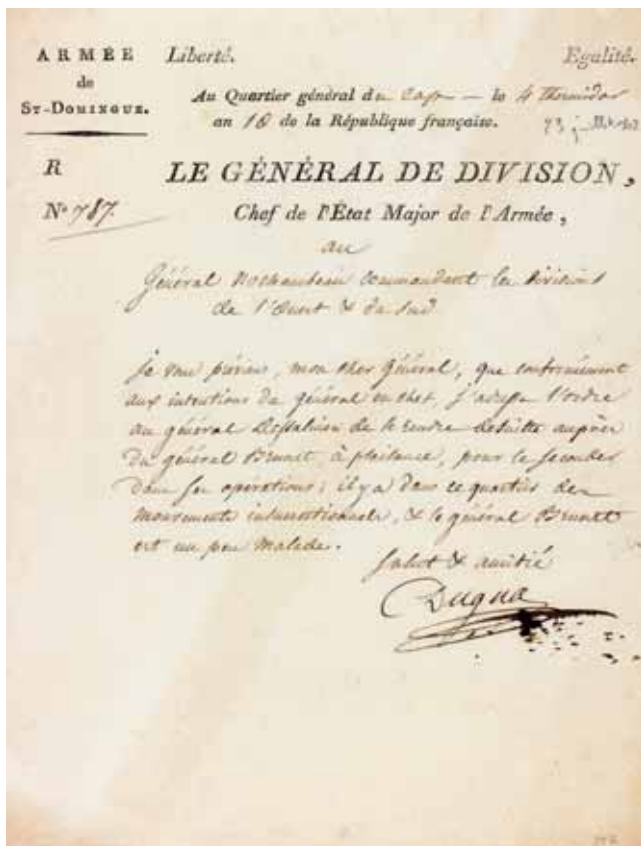 ARMÉE
de
ST-DOMINGUE.
Liberté. Egalité.
Au Quartier général du Cap — le 4 Thermidor
an 10 de la République française.
R
N° 787.
LE GÉNÉRAL DE DIVISION,
Chef de l'État Major de l'Armée,
au
Général Rochambeau Commandant les Divisions
de l'Ouest & du Sud
Je vous préviens, mon cher Général, que conformément
aux intentions du général en chef, j'adresse l'ordre
au général Dessalines de se rendre de suite auprès
du général Brunet à plaisance, pour le seconder
dans ses opérations; il y a dans ce quartier des
mouvements insurrectionnels, & le général Brunet
est un peu malade.
Salut & amitié
Dugua